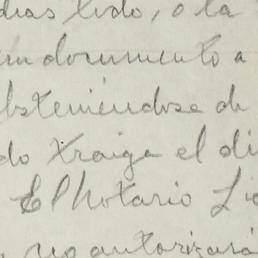 dias todo, o la
un documento a
bsteniéndose de
do traiga el di
El Notario Lic
, no autorizará